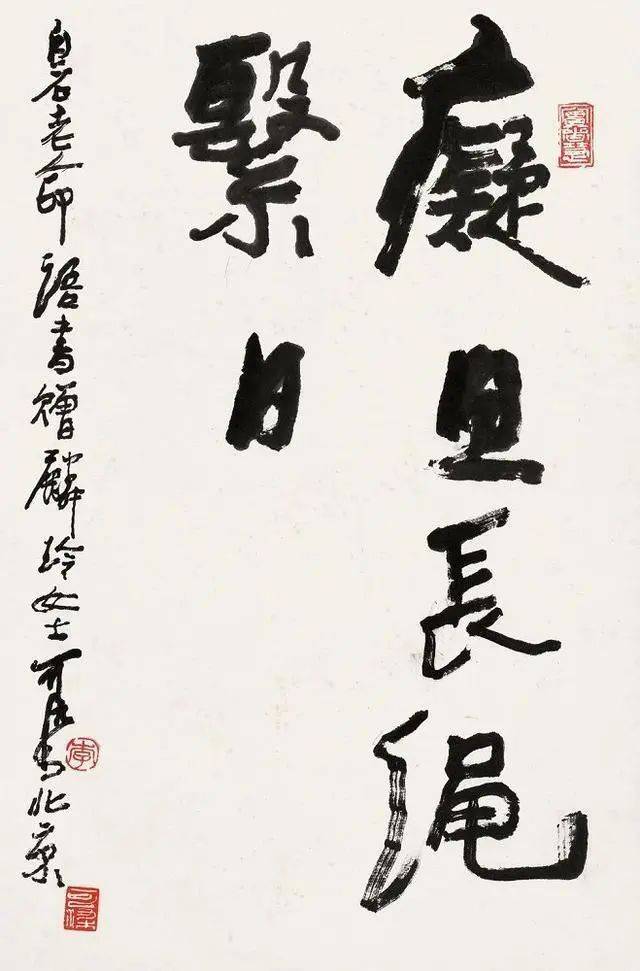 癡思長绳
繫日
白石老人印語書贈麟玲女士可染書北京
李